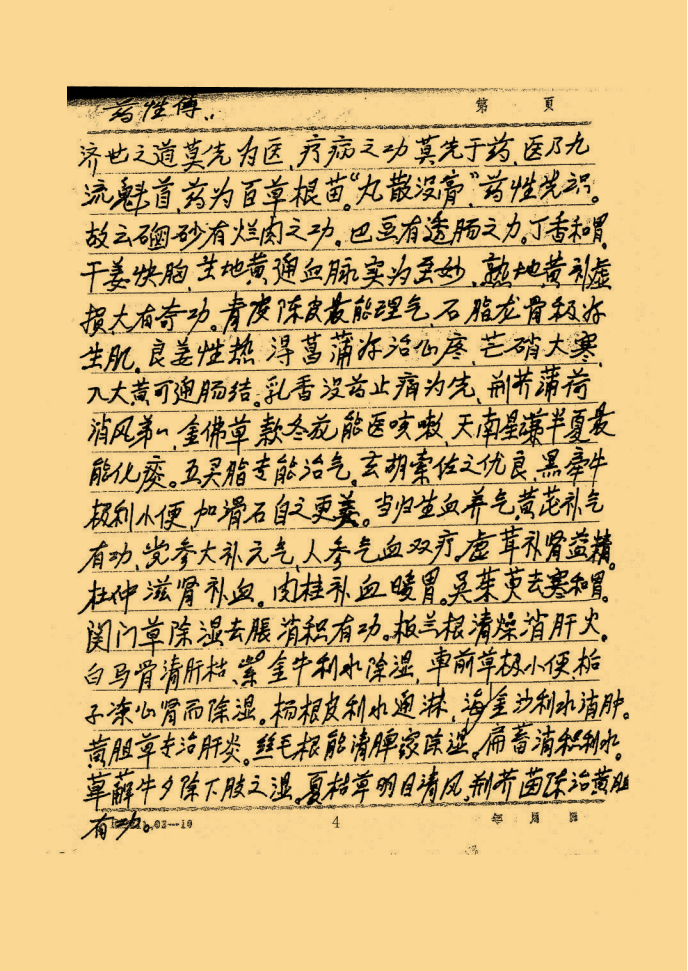 药性傅..
第 頁
济世之道莫先为医、疗病之功莫先于药、医乃九
流魁首、药为百草根苗"丸散没膏"药性先识。
故云硇砂有烂肉之功。巴豆有透肠之力。丁香和胃
干姜快胸、生地黄通血脉实为至妙、熟地黄补虚
损大有奇功。青皮陈皮最能理气、石脂龙骨极好
生肌、良姜性热 得菖蒲好治心疼、芒硝大寒、
入大黄可通肠结。乳香没药止痛为先、荆芥薄荷
消风第一、金佛草款冬花能医咳嗽、天南星蒹半夏最
能化痰。五灵脂专能治气、玄胡索佐之优良、黑牵牛
极利小便、加滑石自之更美。当归生血养气、黄芪补气
有功、党参大补元气、人参气血双疗。虚茸补肾益精。
杜仲滋肾补血。肉桂补血暖胃。吴茱萸去寒和胃。
関门草除湿去脹消积有功。板兰根清燥消肝火。
白马骨清肝枯、紫金牛利水除湿、車前草极小便、栀
子凉心肾而除湿。杨根皮利水通淋、海金沙利水消肿。
黄胆草专治肝炎。丝毛根能清脾家除湿。扁蓄消积利水。
萆薢牛夕除下肢之湿。夏枯草明目清风、荆芥茵陈治黄胆
有功。
4
年 月 日